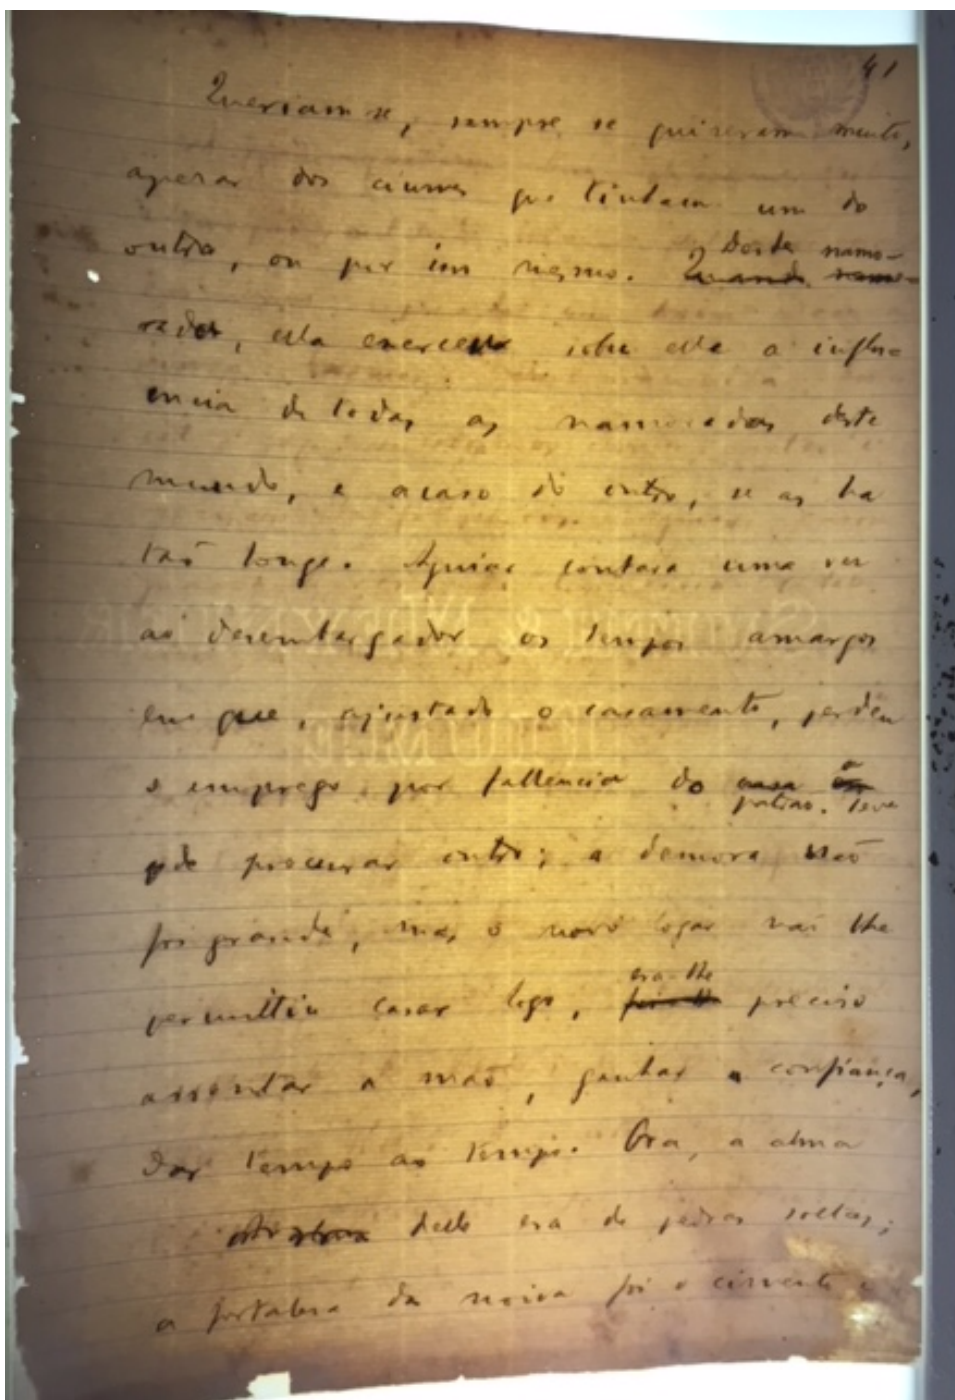 41
Queriam-se, sempre se quizeram muito,
apezar dos ciumes que tinham um do
outro, ou por isso mesmo. Desde namo-
rada, ella exerceu sobre elle a influ-
encia de todas as namoradas deste
mundo, e acaso do outro, se as ha
tão longe. Aguiar contara uma vez
ao desembargador os tempos amargos
em que, ajustado o casamento, perdeu
o emprego por fallencia do patrão. Teve
de procurar outro; a demora não
foi grande, mas o novo logar não lhe
permittiu casar logo, era-lhe preciso
assentar a mão, ganhar a confiança,
dar tempo ao tempo. Ora, a alma
delle era de pedras soltas;
a fortaleza da noiva foi o cimento e